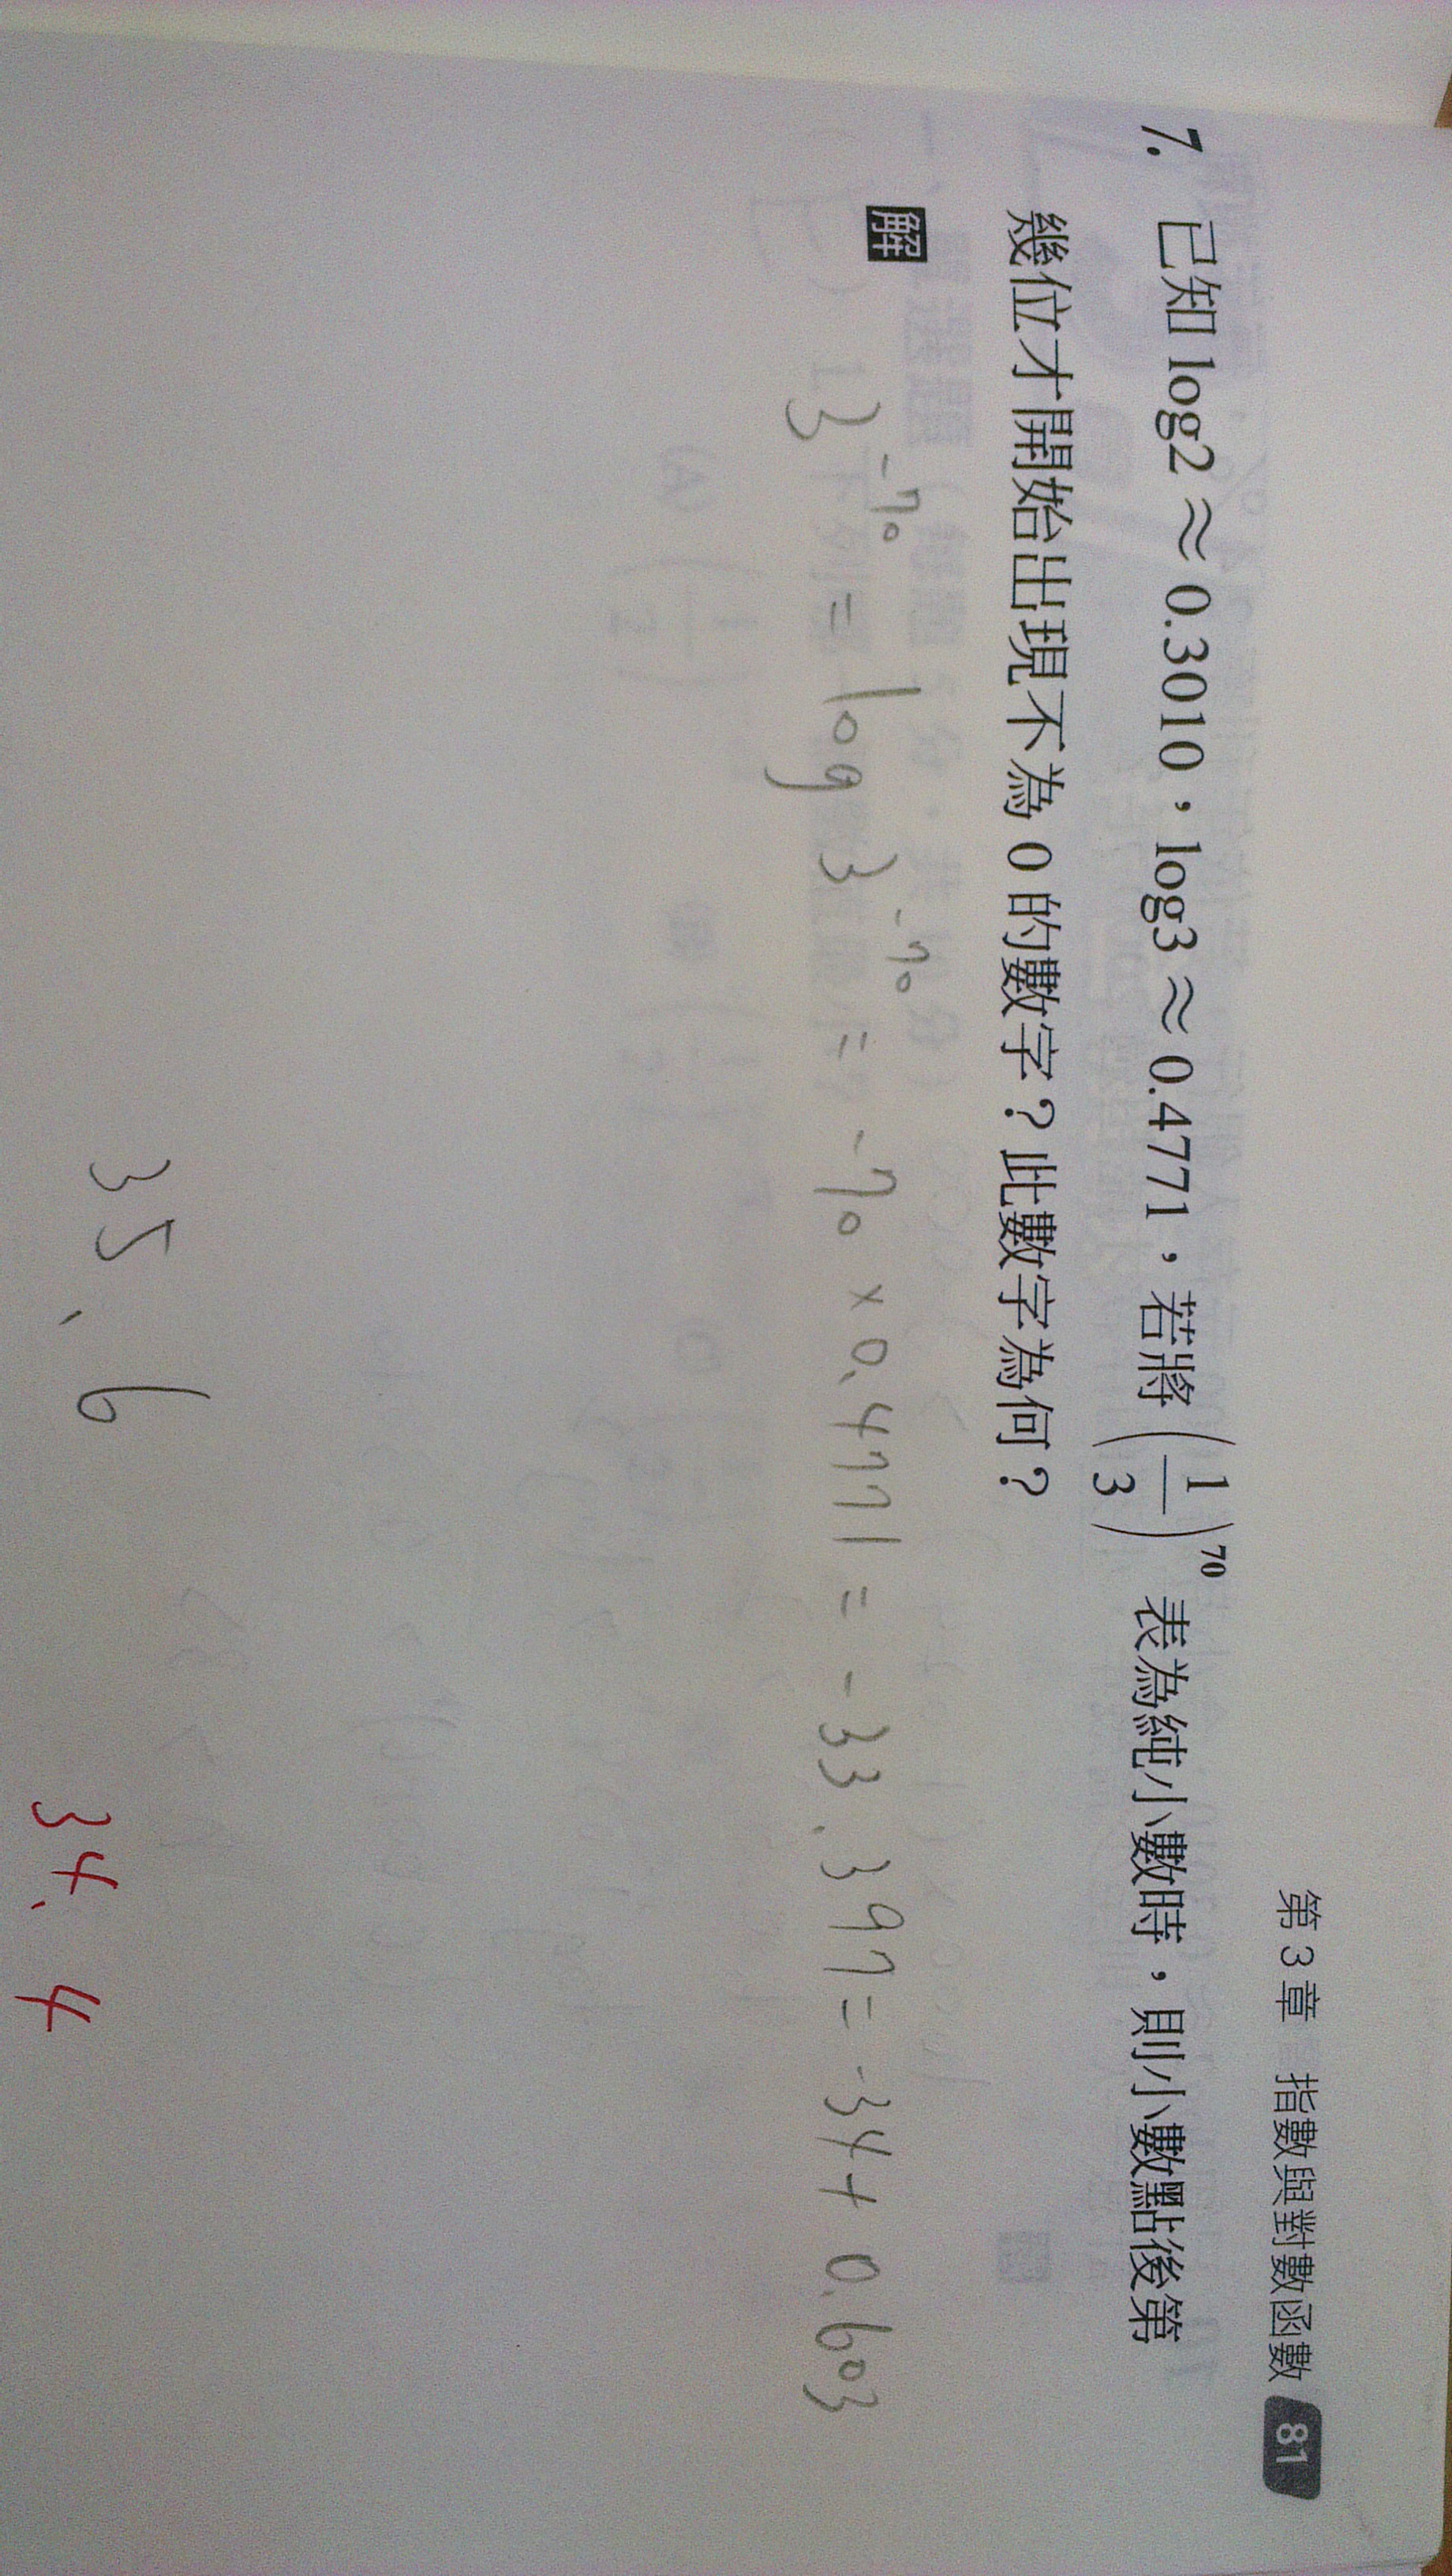 第 3 章 指數與對數函數 81
7. 已知 log2 ≈ 0.3010，log3 ≈ 0.4771，若將 (1/3)^70 表為純小數時，則小數點後第
幾位才開始出現不為 0 的數字？此數字為何？
解
3^-70 = log 3^-70 = -70 × 0.4771 = -33.397 = -34 + 0.603
35、6
34、4